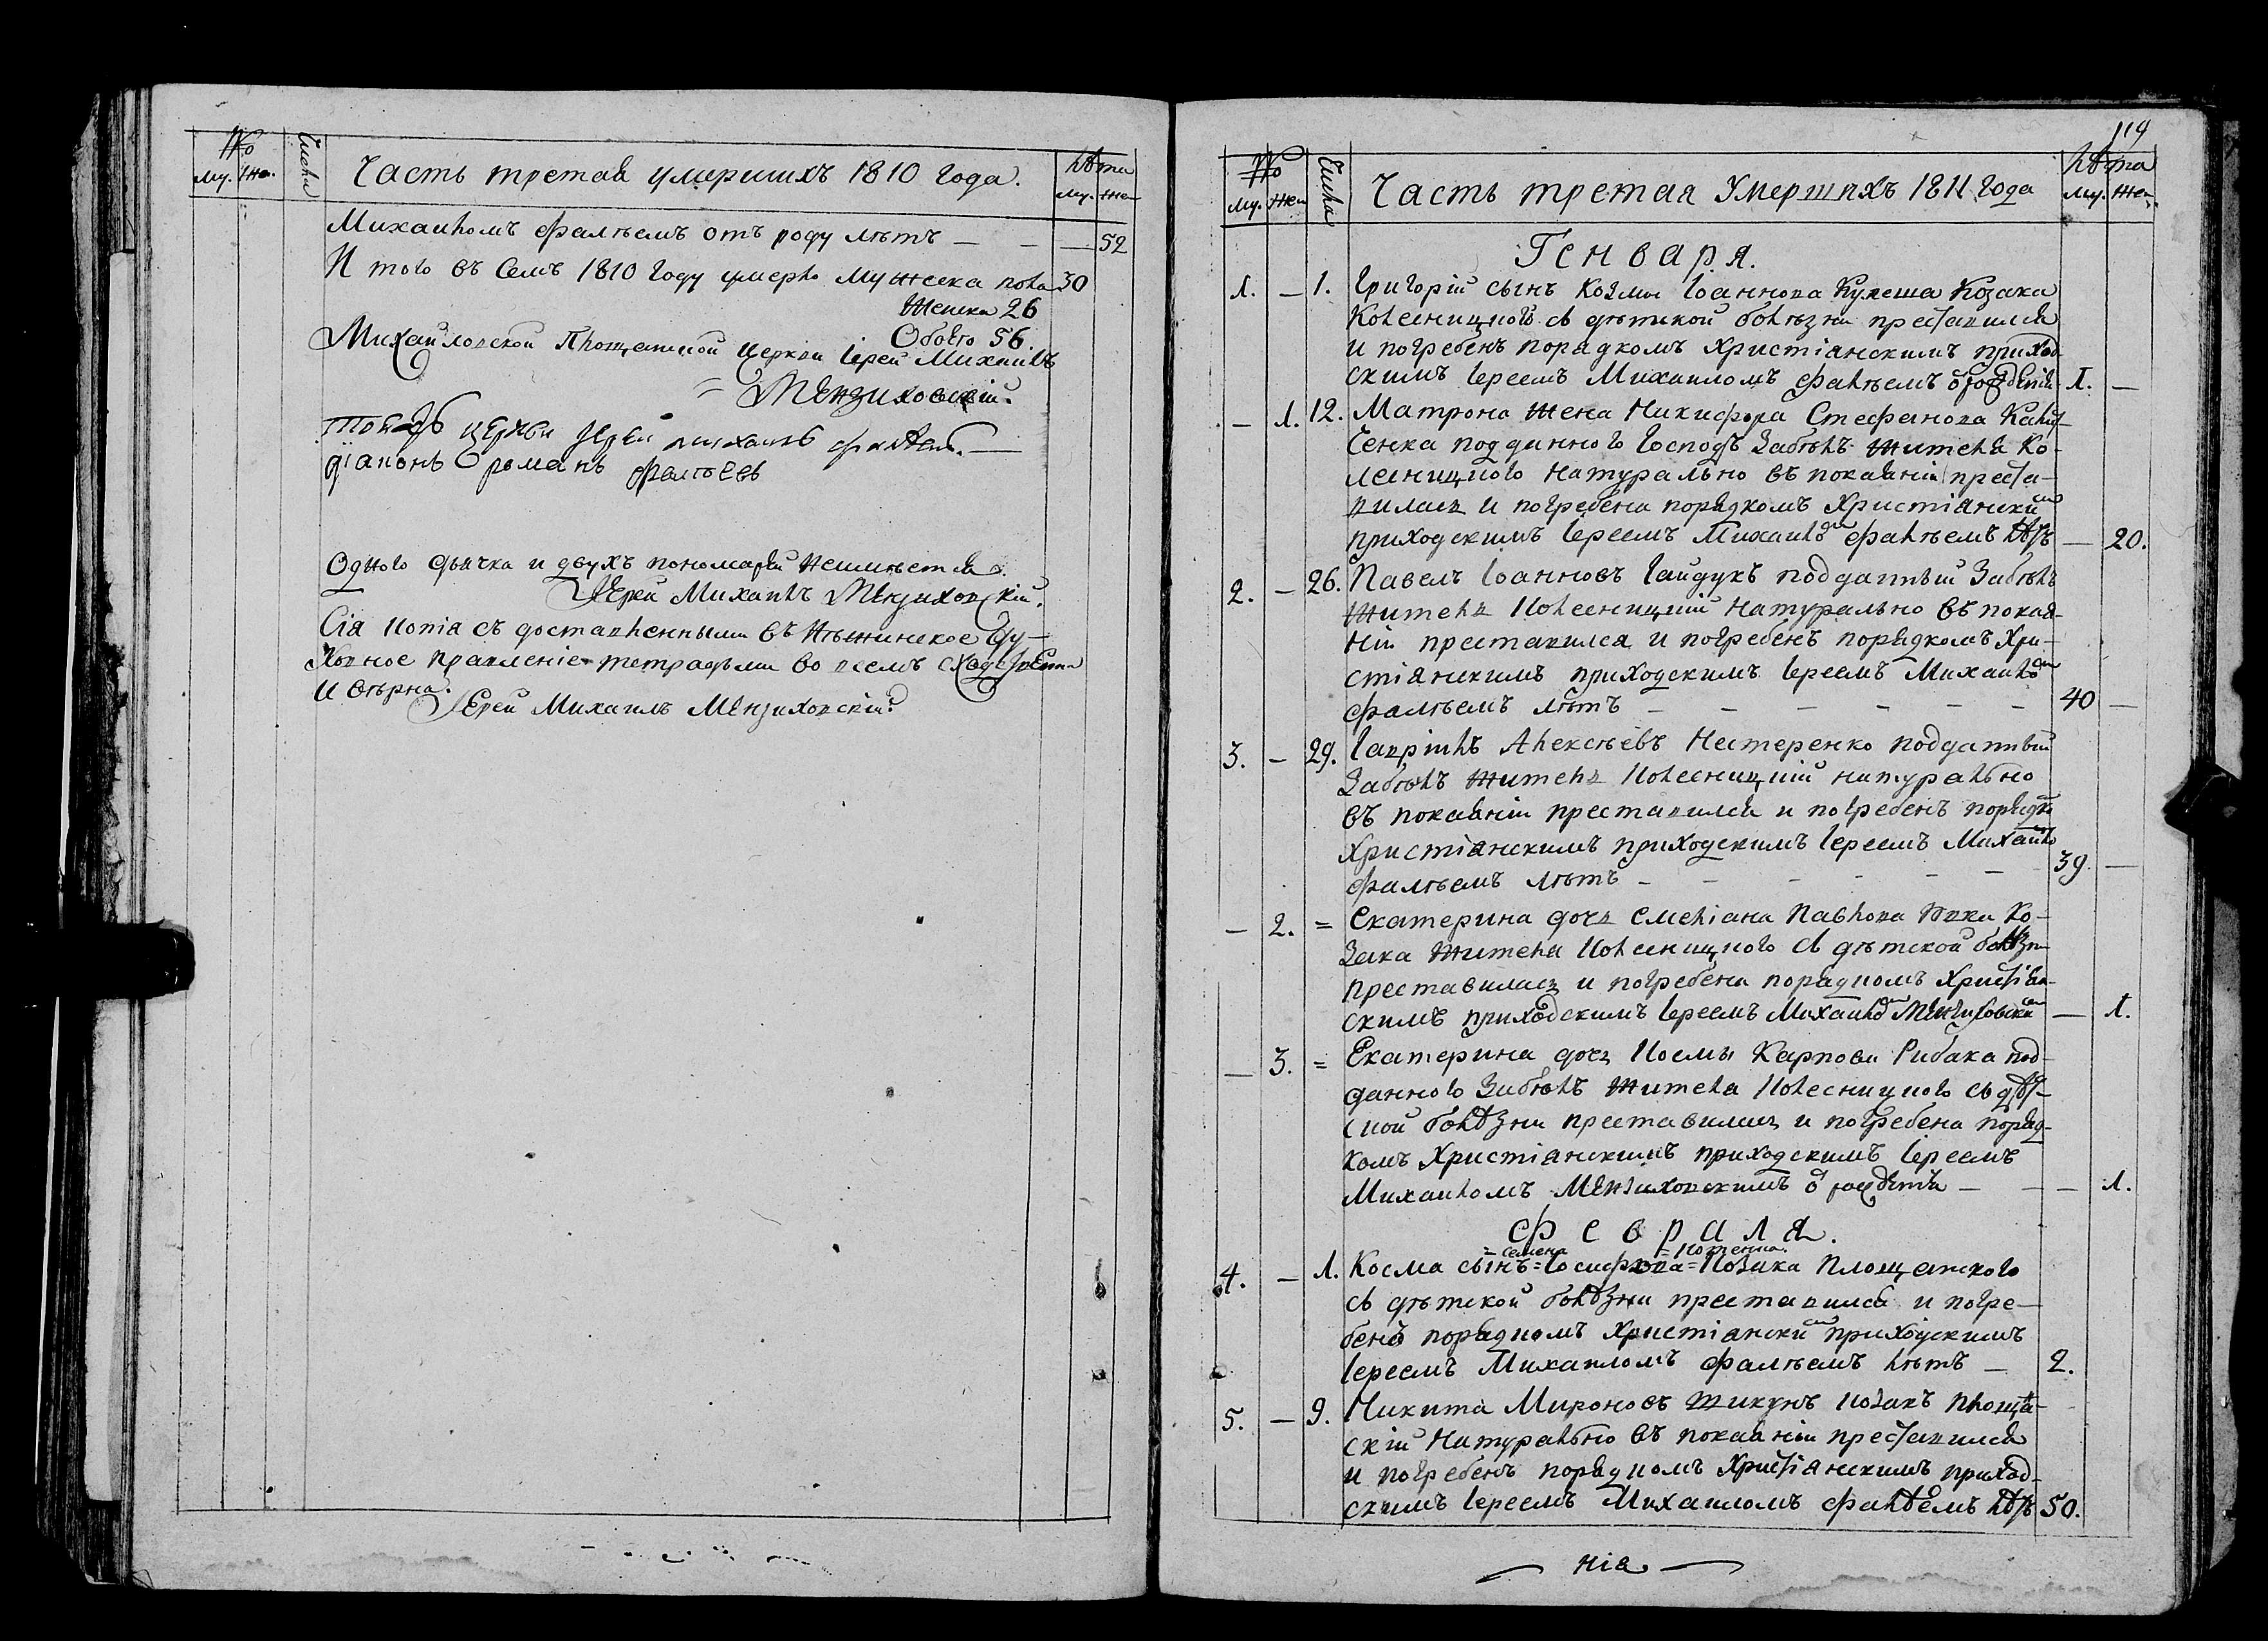 № Числа Часть третая умершихъ 1810 года. Лѣта
Му. Же. Му. Же
Михаиломъ Фалѣемъ отъ роду лѣтъ — — — 52
И того въ семъ 1810 году умерло мужеска пола 30
Женска 26
Обоего 56.
Михайловской Площанской Церкви Іерей Михаилъ
Мензиховскій.
тоей церкви іерей михаилъ фалѣевъ. —
діаконъ романъ фалѣевъ
Одного дьячка и двухъ пономарей неимѣется.
Іерей Михаилъ Мензиховскій.
Сія копія съ доставленными въ Нѣжинское Ду-
ховное правленіе тетрадьми во всемъ сходственна
и вѣрна.
Іерей Михаилъ Мензиховскій.
119
№ Числа Часть третая Умершихъ 1811 года Лѣта
Му. Жен Му. Жен.
Генваря.
1. — 1. Григорій сынъ Козмы Іоаннова Кулеша Козака
Колесницкого съ дѣтской болѣзни преставился
и погребенъ порядкомъ христіанскимъ приход-
скимъ Іереемъ Михаиломъ Фалѣемъ 1. —
— 1. 12. Матрона жена Никифора Стефанова
ченка подданного Господъ Забѣлъ жителя Ко-
лесницкого натурально въ покаяніи преста-
вилась и погребена порядкомъ Христіанскимъ
приходскимъ Іереемъ Михаиломъ Фалѣемъ лѣтъ — 20.
2. — 26. Павелъ Іоанновъ Гайдукъ подданный Забѣлъ
житель Колесницкій натурально въ покая-
ніи преставился и погребенъ порядкомъ Хри-
стіанскимъ приходскимъ Іереемъ Михаиломъ
Фалѣемъ лѣтъ — — — — — — 40 —
3. — 29. Гавріилъ Алексѣевъ Нестеренко подданный
Забѣлъ житель Колесницкій натурально
въ покаяніи преставился и погребенъ порядко
Христіанскимъ приходскимъ Іереемъ Михаило
Фалѣемъ лѣтъ — — — — — — 39. —
— 2. = Екатерина дочь Емеліана Павлова Ко-
зака жителя Колесницкого съ дѣтской болѣзни
преставилась и погребена порядкомъ Христіан-
скимъ приходскимъ Іереемъ Михаиломъ Мензиховским — 1.
— 3. = Екатерина дочь Космы Карпова Рибака под-
данного Забѣлъ жителя Колесницкого съ дѣт-
ской болѣзни преставилась и погребена поряд-
комъ Христіанскимъ приходскимъ Іереемъ
Михаиломъ Мензиховскимъ — — — 1.
Февраля.
= Семена =
4. — 1. Косма сынъ = Іосифова = Козака Площанского
съ дѣтской болѣзни преставился и погре-
бенъ порядкомъ Христіанскимъ приходскимъ
Іереемъ Михаиломъ Фалѣемъ лѣтъ — 2.
5. — 9. Никита Мироновъ Шикунъ козакъ Площан-
скій натурально въ покаяніи преставился
и погребенъ порядкомъ Христіанскимъ приход-
скимъ Іереемъ Михаиломъ Фалѣемъ лѣтъ 50.
— нія —